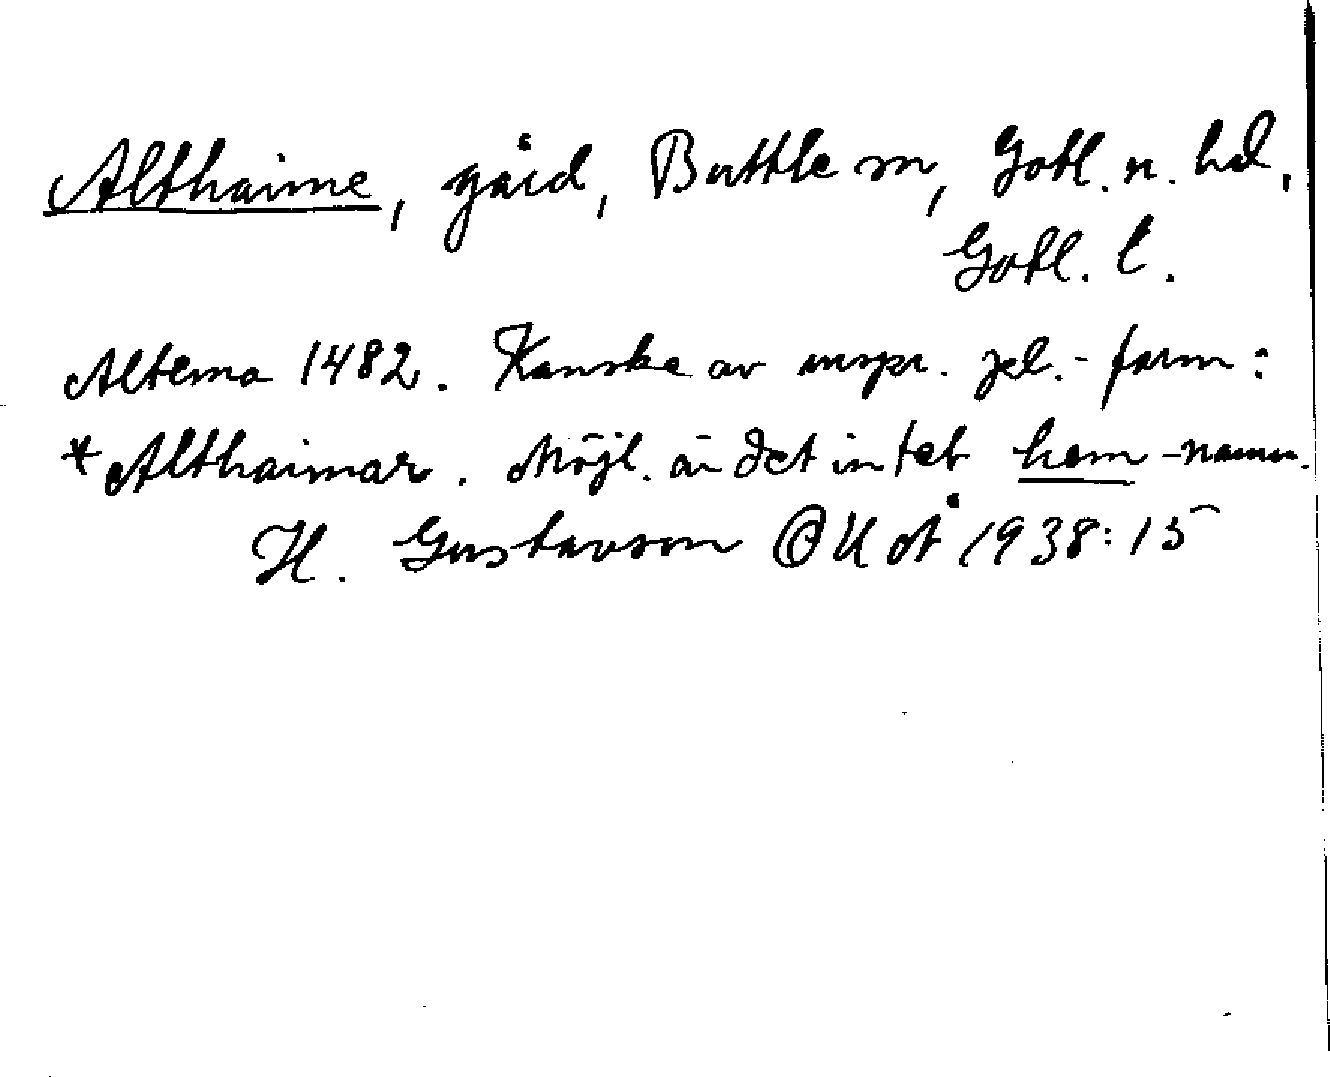 Althaime, gård, Buttle sn, Gotl. n. hd,
Gotl. l.
Altema 1482. Kanske av urspr. pl.-form:
*Althaimar. Möjl. är det intet hem-namn.
H. Gustavson OUÅ 1938:15